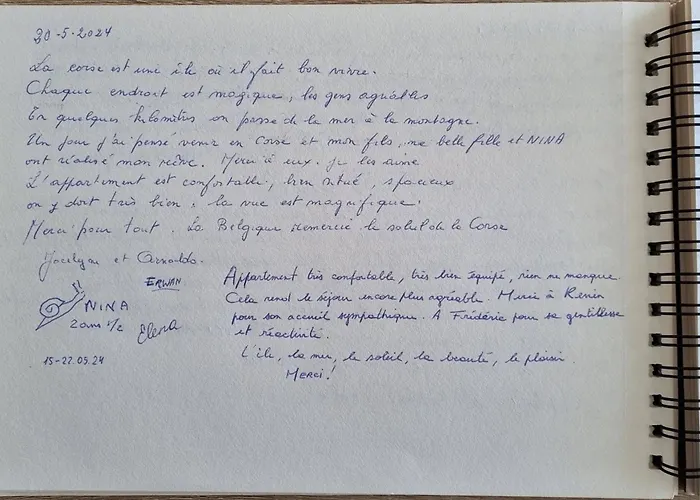 30-5-2024
La corse est une île où il fait bon vivre.
Chaque endroit est magique, les gens agréables
En quelques kilomètres on passe de la mer à la montagne.
Un jour j'ai pensé venir en Corse et mon fils, ma belle fille et NINA
ont réalisé mon rêve. Merci à eux. Je les aime
L'appartement est confortable, bien situé, spacieux
on y dort très bien, la vue est magnifique.
Merci pour tout. La Belgique remercie le soleil de la Corse
Jocelyne et Arnoldo.
ERWAN
NINA
2 ans 1/2
Elena
15-22.05.24
Appartement très confortable, très bien équipé, rien ne manque.
Cela rend le séjour encore plus agréable. Merci à
pour son accueil sympathique. A Frédéric pour sa gentillesse
et réactivité.
L'île, la mer, le soleil, la beauté, le plaisir.
MERCI!